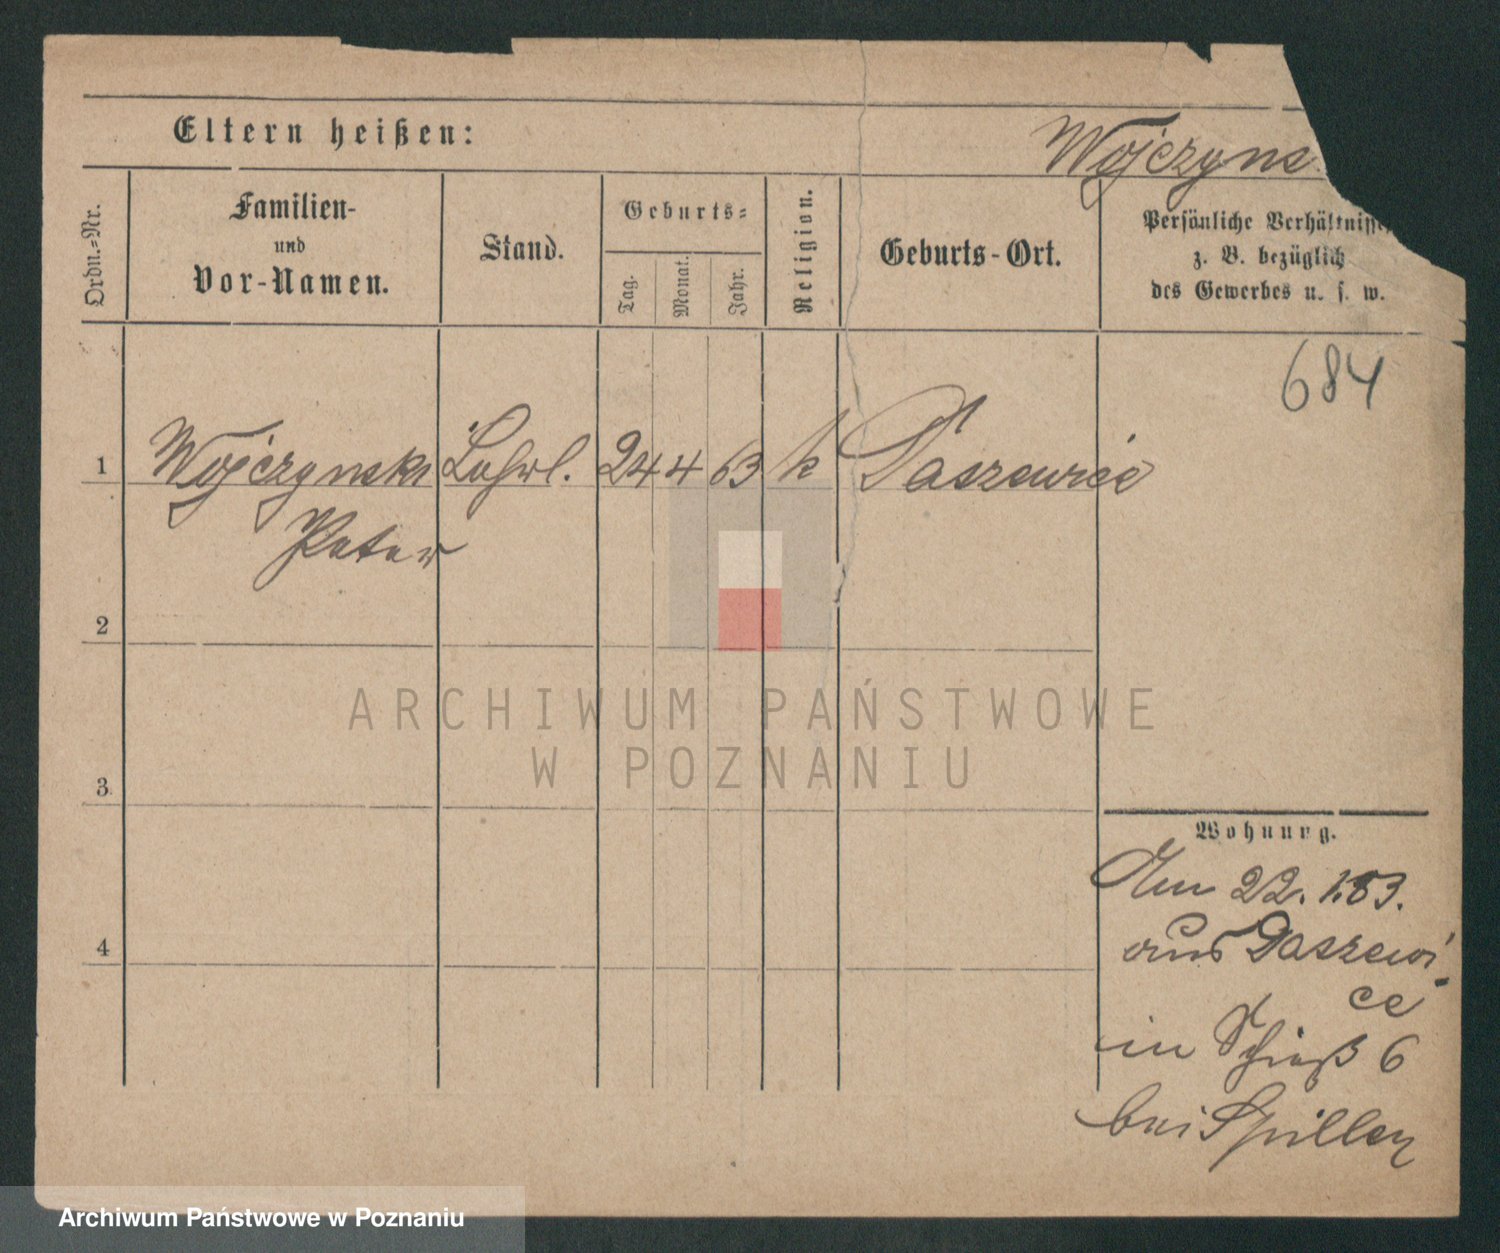 Eltern heißen:
Wojczyns
Ordn.=Nr.
Familien-
und
Vor-Namen.
Stand.
Geburts=
Tag.
Monat.
Jahr.
Religion.
Geburts-Ort.
Persönliche Verhältnisse
z. B. bezüglich
des Gewerbes u. s. w.
684
1 Wojczynski Lehrl. 24 4 63 k Daszewice
Peter
2
3
4
Wohnung.
Am 22. 1. 83.
aus Daszewi-
ce
in Schieß 6
bei Spiller
ARCHIWUM PAŃSTWOWE
W POZNANIU
Archiwum Państwowe w Poznaniu